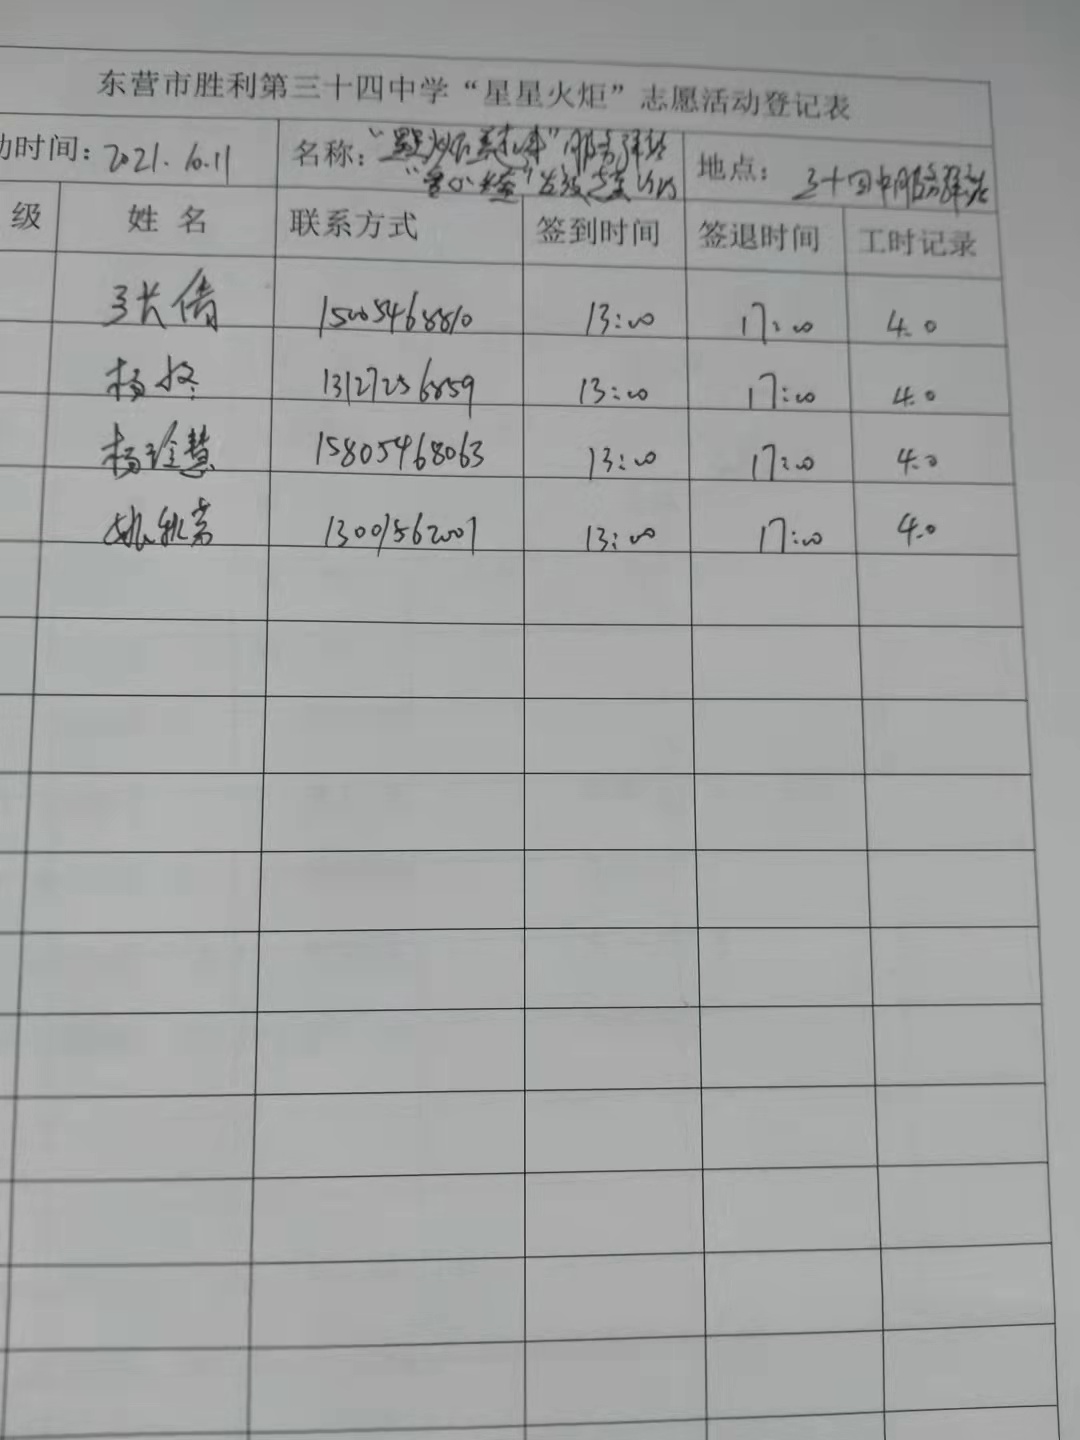 东营市胜利第三十四中学“星星火炬”志愿活动登记表
动时间：2021.10.11 名称： 服务驿站 地点：三十四中服务驿站
级 姓名 联系方式 签到时间 签退时间 工时记录
张倩 15005468810 13:00 17:00 4.0
杨 13127256859 13:00 17:00 4.0
杨玲慧 15805468063 13:00 17:00 4.0
姚秋芳 13001562007 13:00 17:00 4.0